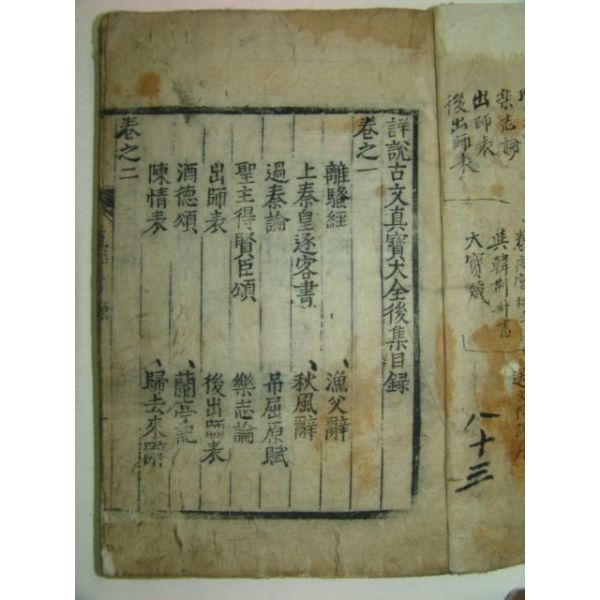 樂志論
出師表
後出師表
與韓荊州書
大寶箴
八十三
詳說古文真寶大全後集目録
卷之一
離騷經
漁父辭
上秦皇逐客書
秋風辭
過秦論
吊屈原賦
聖主得賢臣頌
樂志論
出師表
後出師表
酒德頌
蘭亭記
陳情表
歸去來辭
卷之二